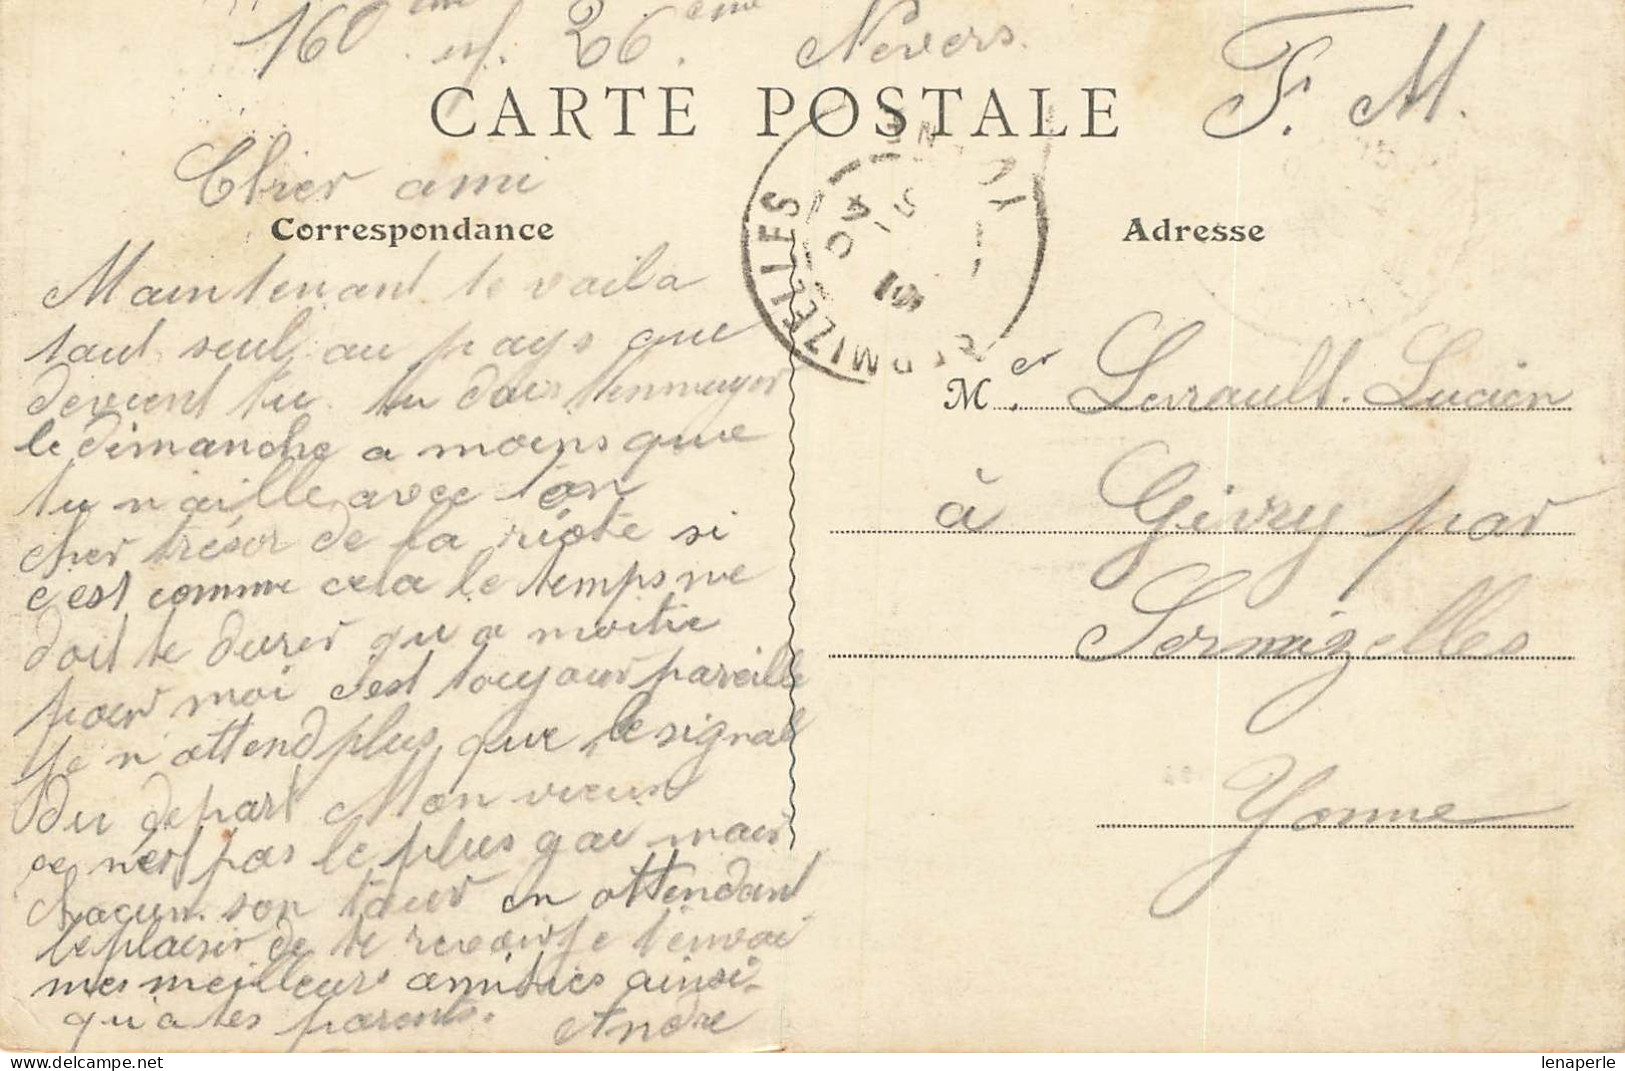 160 inf. 26ème Nevers.
F. M.
CARTE POSTALE
Cher ami
Correspondance
Adresse
Maintenant te voila
tout seul au pays que
devient tu tu dois tenmuyer
le dimanche a moins que
tu n'aille avec ton
cher trésor de la
si
c'est comme cela le temps ne
doit te durer qu a moitie
pour moi c'est toujour pareille
je n'attend plus que le signal
du depart Mon vieux
ce n'est pas le plus gai mais
chacun son tour en attendant
le plaisir de te revoir je t'envoi
mes meilleurs amities ainsi
qu'a tes parents.
André
M.er Levault. Lucien
à Givry par
Sermizelles
Yonne
SERMIZELLES
lenaperle